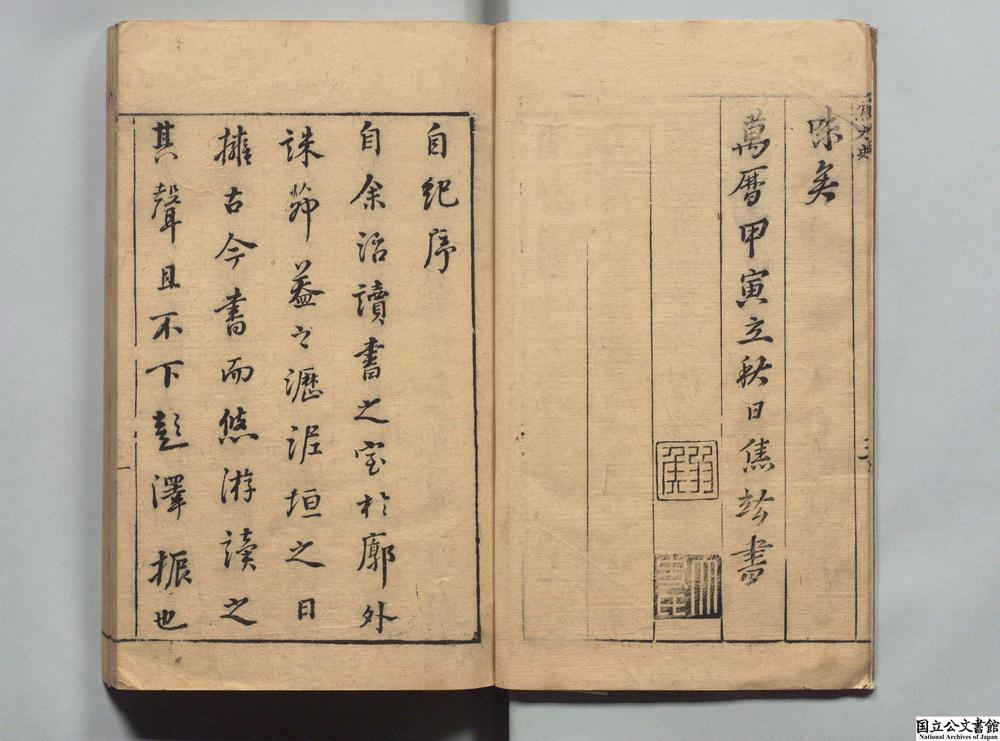 味矣
萬曆甲寅立秋日焦竑書
自紀序
自余治讀書之室於廓外
誅茆葢之瀝泥垣之日
擁古今書而悠游讀之
其聲且不下彭澤振也
国立公文書館
National Archives of Japan